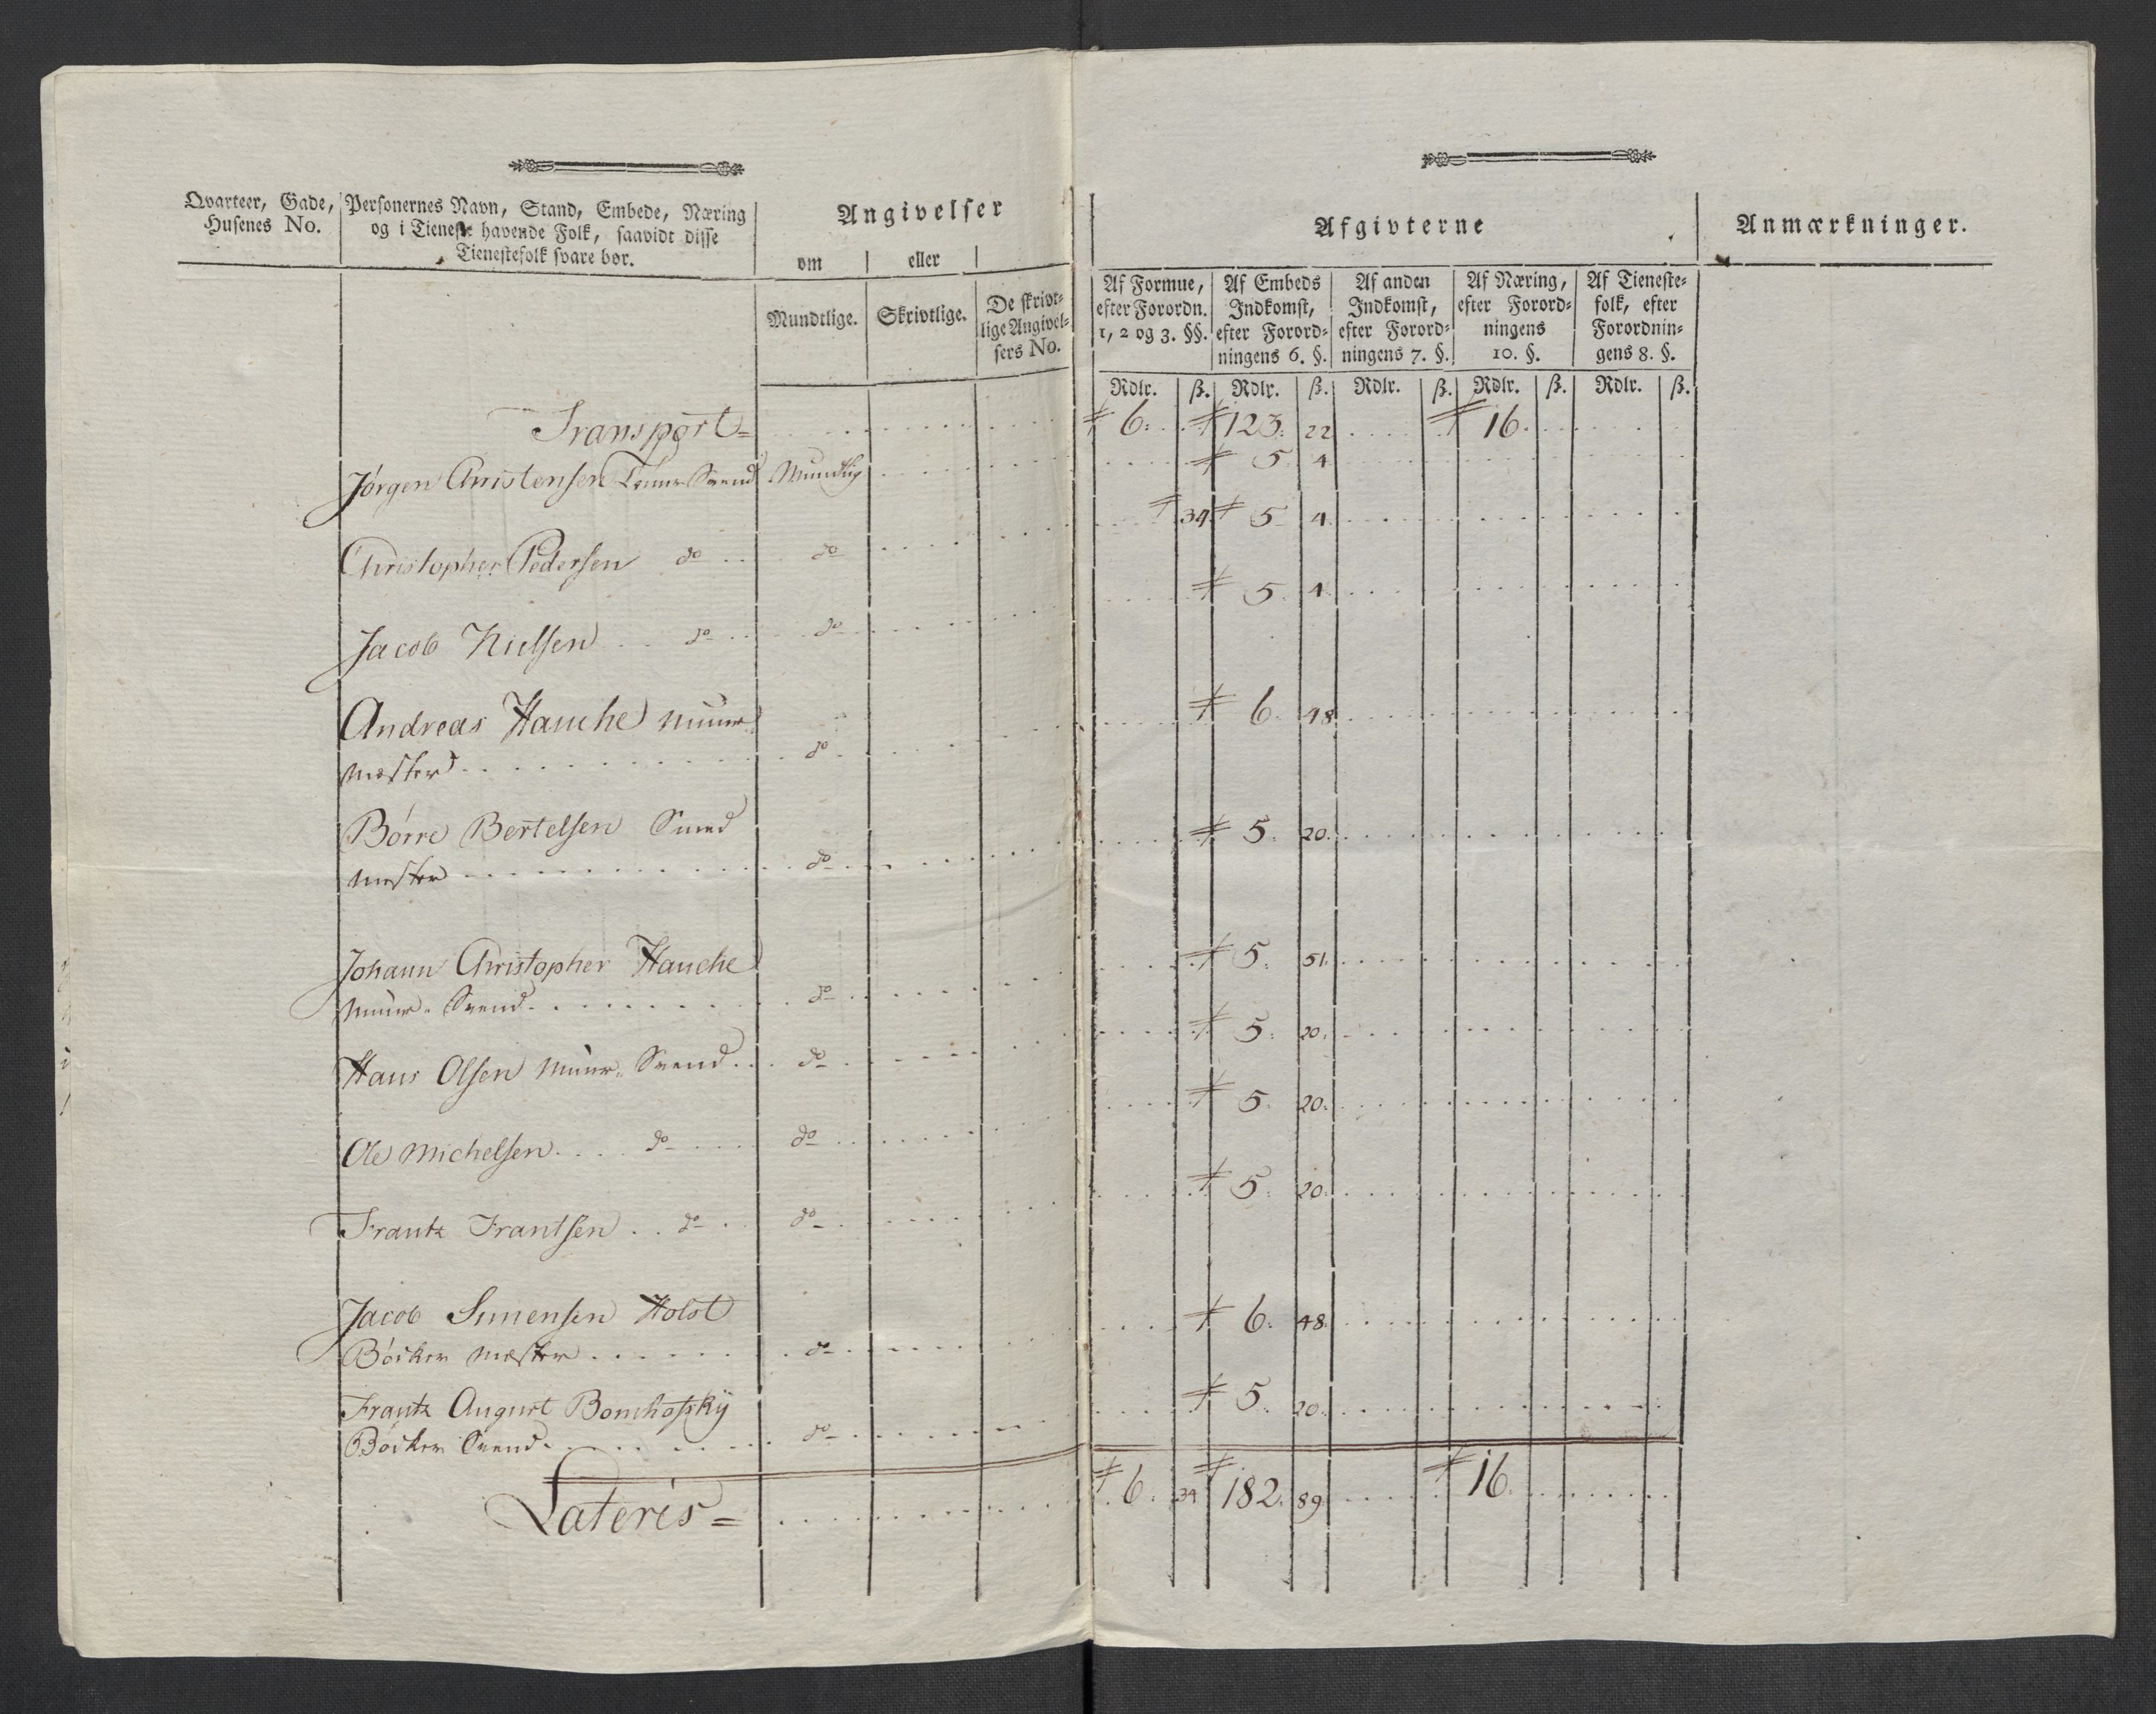 Qvarteer, Gade, Husenes No.
Personernes Navn, Stand, Embede, Næring
og i Tieneste havende Folk, saavidt disse
Tienestefolk svare bør.
Angivelser
om eller
Mundtlige. Skrivtlige. De skrivt-
lige Angivel-
sers No.
Afgivterne
Anmærkninger.
Af Formue,
efter Forordn.
1, 2 og 3. §§.
Af Embeds
Indkomst,
efter Forord-
ningens 6. §.
Af anden
Indkomst,
efter Forord-
ningens 7. §.
Af Næring,
efter Forord-
ningens
10. §.
Af Tieneste-
folk, efter
Forordnin-
gens 8. §.
Rdlr. ß. Rdlr. ß. Rdlr. ß. Rdlr. ß. Rdlr. ß.
Transport= 6. 123. 22 16.
Jørgen Christensen Svend Mundtlig 5 4
Christopher Pedersen do do 34 5 4
Jacob Nielsen do do 5. 4
Andreas Hauche Muur-
Mester do 6. 48
Børre Bertelsen Smed
Mester do 5. 20.
Johann Christopher Hauche
Muur-Svend do 5. 51.
Hans Olsen Muur-Svend do 5. 20.
Ole Michelsen do do 5. 20.
Frantz Frantsen do do 5. 20.
Jacob Simensen Holst
Bødker Mester do 6. 48.
Frantz August
Bødker Svend do 5. 20.
Lateris= 6. 34 182. 89. 16.